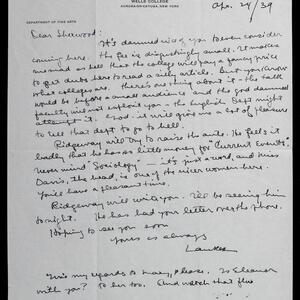 WELLS COLLEGE
AURORA-ON-CAYUGA, NEW YORK
DEPARTMENT OF FINE ARTS
Apr. 24/39
Dear Sherwood:
It's damned nice of you to even consider
coming here. The fee is disgustingly small. It makes
me mad as hell that the college will pay a fancy price
to get dubs here to read a silly article. But you know
what colleges are. There's one thing about it – the talk
would be before a small audience and the god damned
faculty will not impose upon you – the English Dept might
attempt it. God – it will give me a lot of pleasure
to tell that dept to go to hell.
Ridgeway will try to raise the ante. He feels it
badly that he has so little money for "Current Events".
Never mind "Sociology" – it's just a word, and Miss
Davis, the head, is one of the nicer women here.
You'll have a pleasant time.
Ridgeway will write you. I'll be seeing him
tonight. He has had your letter over the phone.
Hoping to see you soon
Yours as always
Lankes
Give my regards to Mary, please. Is Eleanor
with you? To her too. And watch that flue